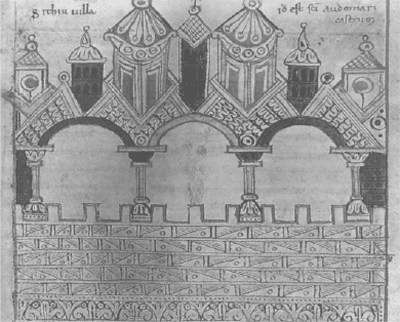 Sithiu uilla
id est sci audomari